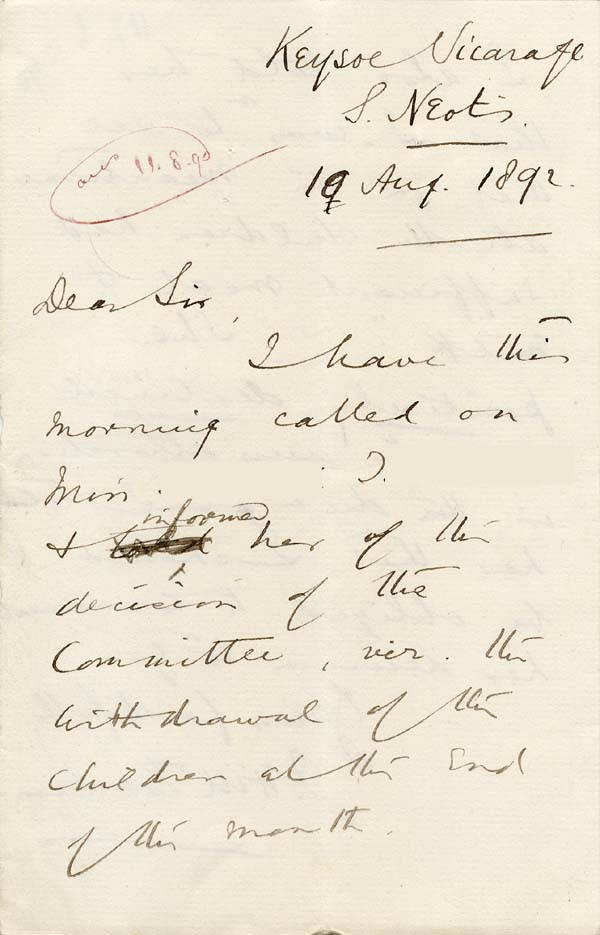 Keysoe Vicarage
S. Neots.
19 Aug. 1892.
Dear Sir,
I have this
morning called on
Miss. T.
informed
& told her of the
decision of the
Committee, viz. the
withdrawal of the
children at the end
of this month.